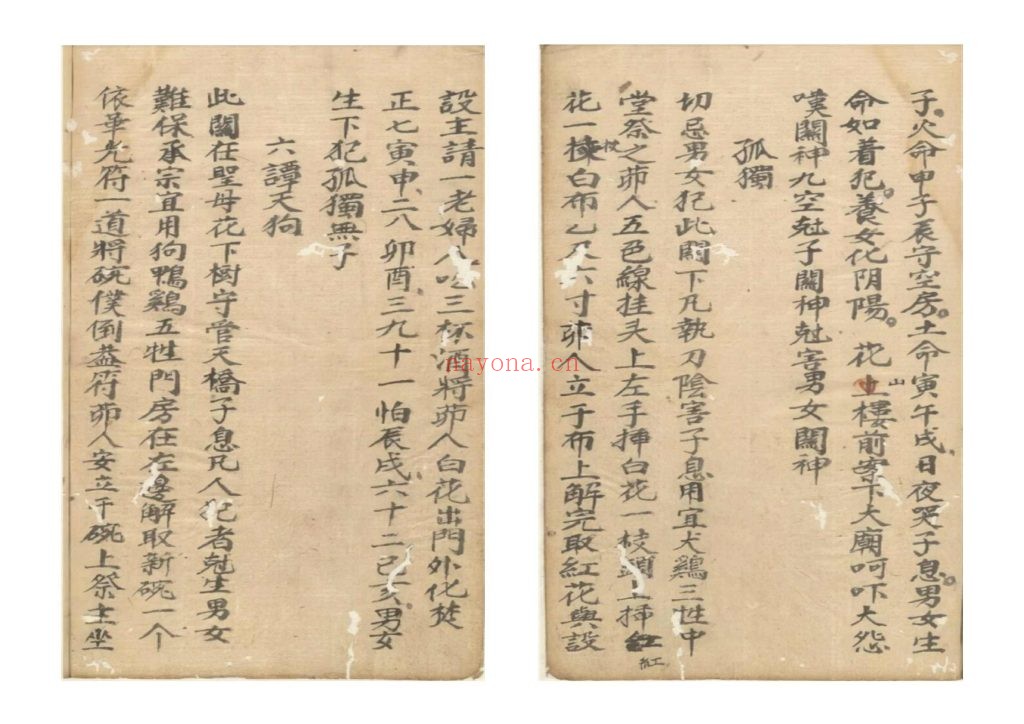 子火命申子辰守空房土命寅午戌日夜哭子息男女生
命如着犯養女化阴陽花山樓前寨下大廟呵吓大怨
嘆關神九空尅子關神尅害男女關神
孤獨
切忌男女犯此關下凡執刀陰害子息用宜犬鷄三牲中
堂祭之茆人五色線挂头上左手揷白花一枝頭上揷紅
花一枝白布乙尺六寸茆人立于布上解完取紅花與設
設主請一老婦人吃三杯酒將茆人白花出門外化焚
正七寅申二八卯酉三九十一怕辰戌六十二己亥男女
生下犯孤獨無子
六譚天狗
此關在聖母花下樹守管天橋子息凡人犯者尅生男女
難保承宗宜用狗鴨鷄五牲門房在左邊解取新碗一个
依華光符一道將碗僕倒盖符茆人安立于碗上祭主坐
nayona.cn